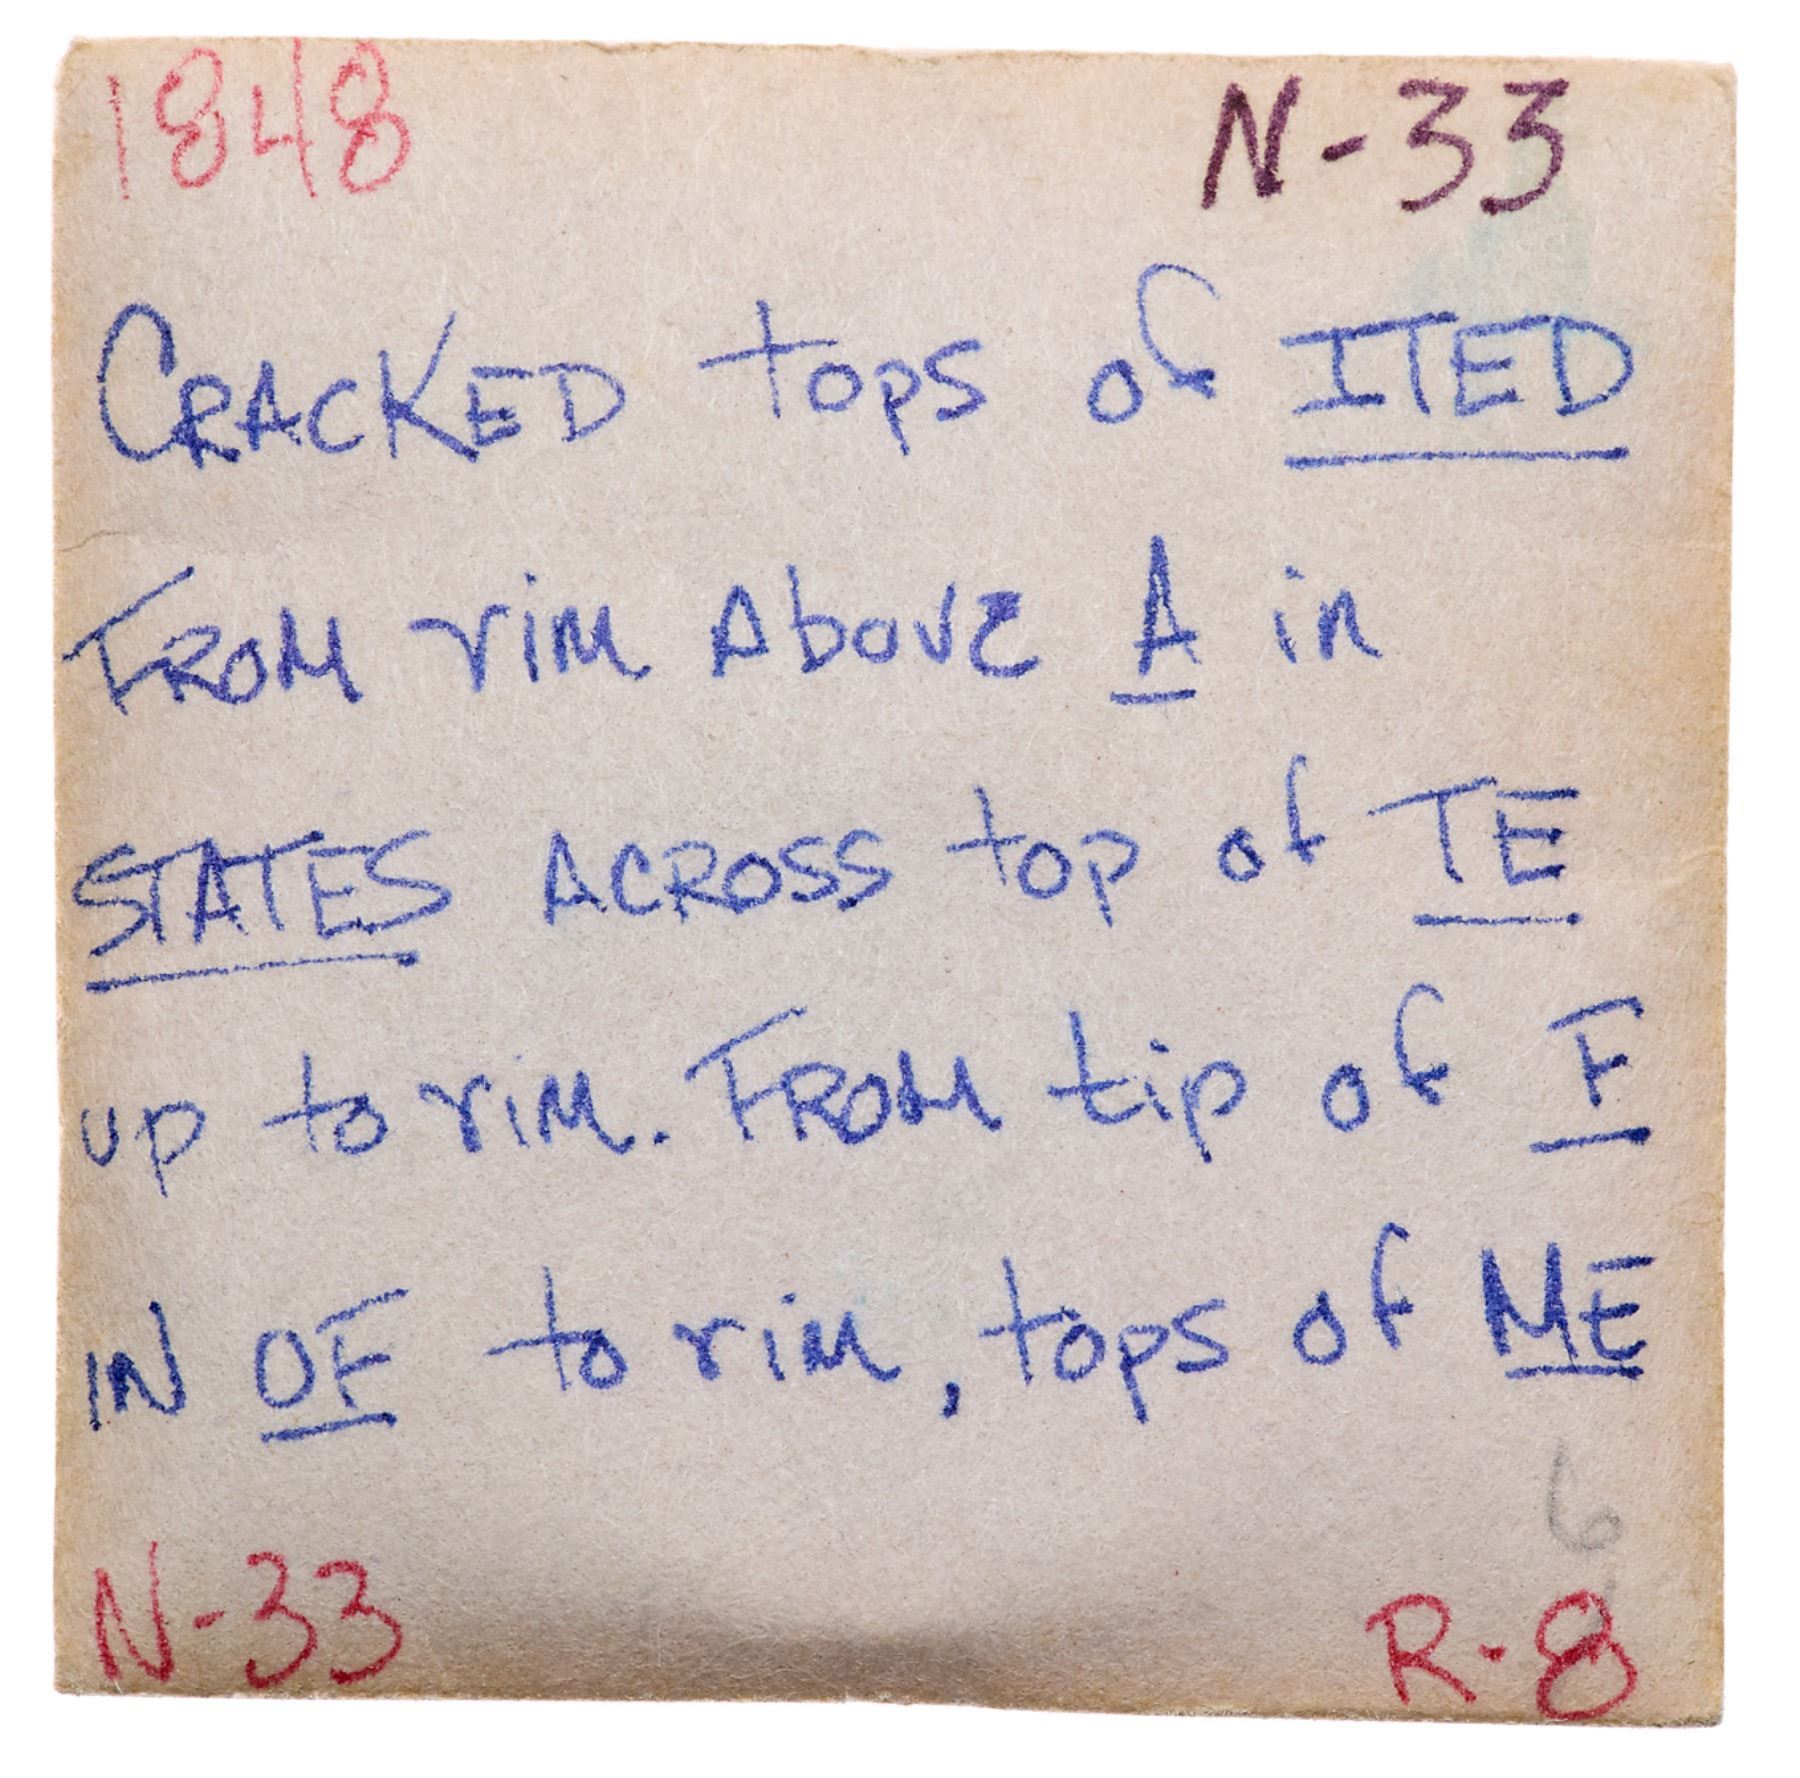 1848 N-33
CRACKED tops of ITED
FROM rim Above A in
STATES ACROSS top of TE
up to rim. FROM tip of F
IN OF to rim, tops of ME
6
N-33 R-8